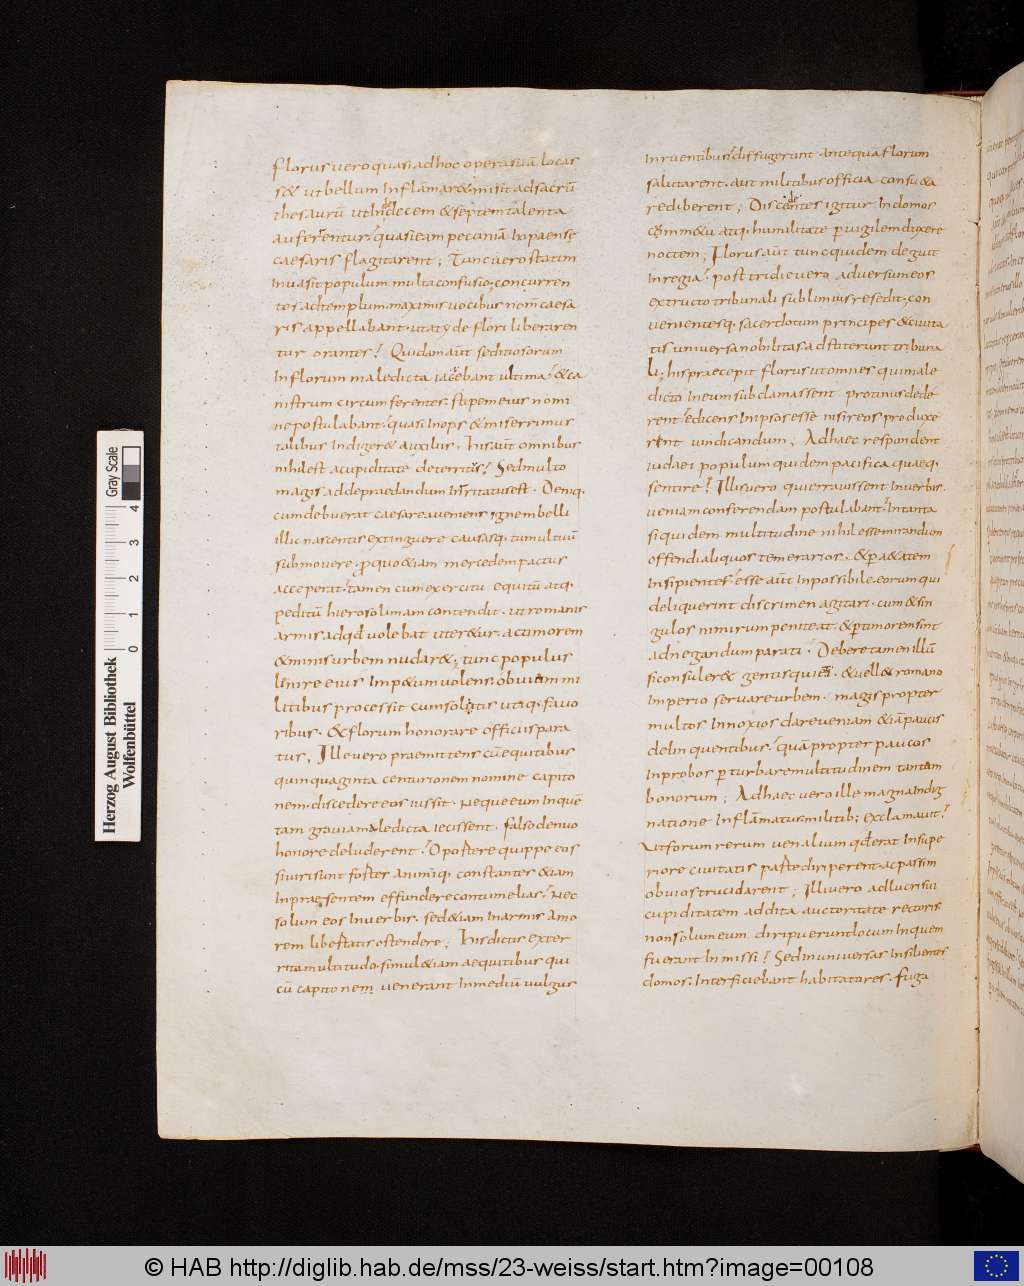 florus vero quasi ad hoc operã suã locas
s& ut bellum Inflãmar& misit ad sacrũ
thesaurũ ut Inde decem & septem talenta
auferrentur quasi eam pecuniã Impense
caesaris flagitarent ; Tunc vero statim
Invasit populum multa confusio; concurren
tes ad templum maximis vocibus nom̃ caesa
ris appellabant · ut a ty de flori liberaren
tur orantes ! Quidam aũt seditiosorum
In florum maledicta iaciebant ultima & ca
nistrum circumferentes · stipem eius nomi
ne postulabant quasi Inops & miserrimus
talibus Indiger& auxiliis · his aũt omnibus
nihil est a cupiditate deterritus ! Sed multo
magis ad depraedandum Inritatus est · Deniq·
cum debuerat caesarea veniens ignem belli
illic nascentis extinguere causasq· tumultuũ
submovere · pro quo &iam mercedem pactus
acceperat tamen cum exercitu equitũ atq·
peditũ hierosolimam contendit · ut romanis
armis ad qd volebat uter&ur · ac timorem
& minis urbem nudar&; tunc populus
lenire eius Imp&um volens · obviam mi
litibus processit cum solitis utiq· favo
ribus · & florum honorare officiis para
tus ; Ille vero praemittens cũ equitibus
quinquaginta centurionem nomine capito
nem · discedere eos iussit · Neque eum In quẽ
tam gravia maledicta iecissent · falso denuo
honore deluderent ! Oportere quippe eos
si viri sint forter animiq· constanter &iam
In praesentem effundere contumelias · Nec
solum eos In verbis · sed &iam In armis Amo
rem libertatis ostendere ; His dictis exter
rita multitudo · simul &iam ae quitibus qui
cũ capitonem venerant In mediũ vulgus
Inruentibus diffugerunt antequã florum
salutarent · aut militibus officia consu&a
redíberent ; Discedentes igitur In domos
cũm m&u atq· humilitate pervigilem duxere
noctem ; Florus aũt tunc quidem deguit
In regia post tridie vero adversum eos
extructo tribunali sublimius resedit · con
venientesq· sacerdotum principes & civita
tis universa nobilitas adstiterunt tribuna
li; his praecepit florus ut omnes qui male
dicta In eum subclamassent protinus dede
rent edicens In ipsos esse nisi reos produxe
rint vindicandum ; Ad haec respondent
iudaei populum quidem pacifica quaeq·
sentire ! Illis vero qui erravissent In verbis·
veniam conferendam postulabant ! In tanta
siquidem multitudine nihil esse mirandum
offendi aliquos temerarios · & p a&atem
Insipientes esse aũt Inpossibile eorum qui
deliquerint discrimen agitari · cum & sin
gulos nimirum peniteat · & p timorem sint
ad negandum parati · Debere tamen illũ
si consuler& gentis quieti · & vell& romano
Imperio servare urbem · magis propter
multos Innoxios dare veniam &iã paucis
delinquentibus quã propter paucos
Inprobos pturbare multitudinem tantam
bonorum ; Ad haec vero ille magna Indig
natione Inflãmatus militib; exclamavit !
Ut forum rerum venalium qd erat In supe
riore civitatis parte diriperent · ac passim
obvios trucidarent ; Illi vero ad lucri sui
cupiditatem addita auctoritate rectoris
non solum eum diripuerunt locum In quem
fuerant Inmissi ! Sed In universas Insilientes
domos · Interficiebant habitatores · fuga
Gray Scale
0 1 2 3 4
Herzog August Bibliothek
Wolfenbüttel
© HAB http://diglib.hab.de/mss/23-weiss/start.htm?image=00108